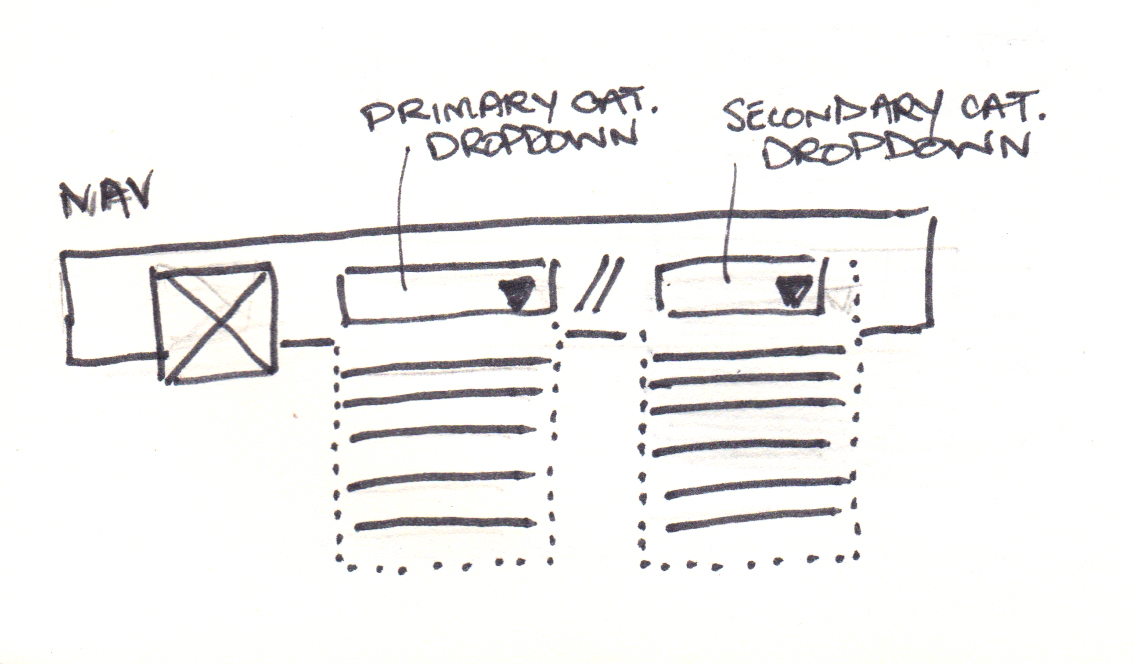 PRIMARY CAT.
DROPDOWN
SECONDARY CAT.
DROPDOWN
NAV
//